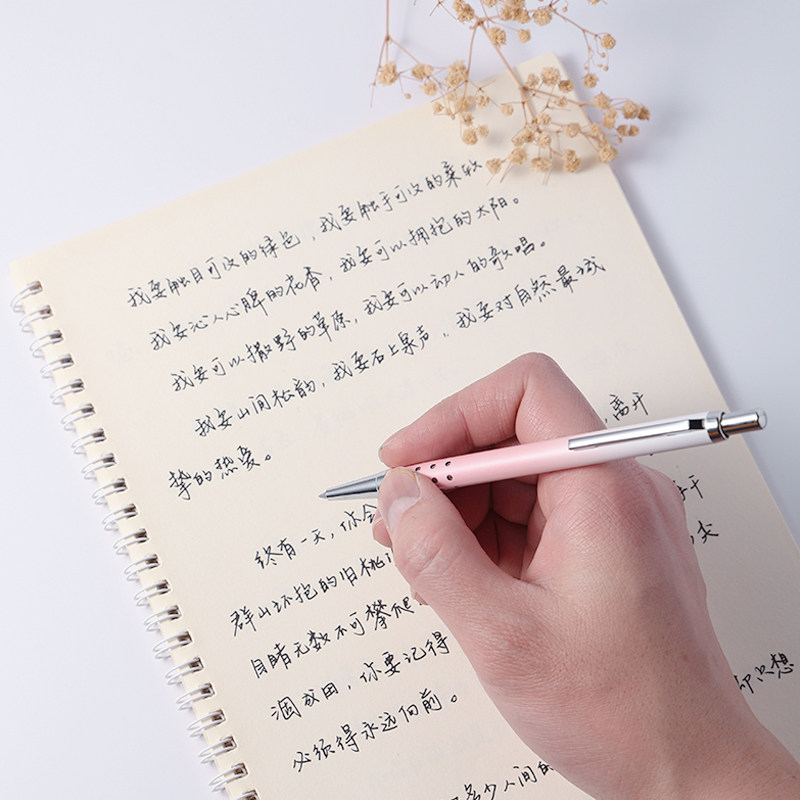 我要触目可及的绿色，我要触手可及的柔软
我要沁人心脾的花香，我要可以拥抱的太阳。
我要可以撒野的草原，我要可以动人的歌唱。
我要山间松韵，我要石上泉声，我要对自然最诚
挚的热爱。
离开
终有一天，你会
群山环抱的旧桃
目睹无数不可攀爬
涸成田，你要记得
却只想
必须得永远向前。
多少人间的